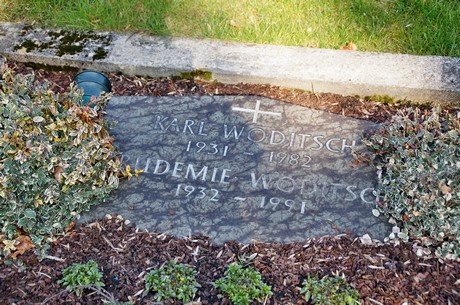 KARL WODITSCH
1931 - 1982
UDEMIE WODITSC
1932 - 1991